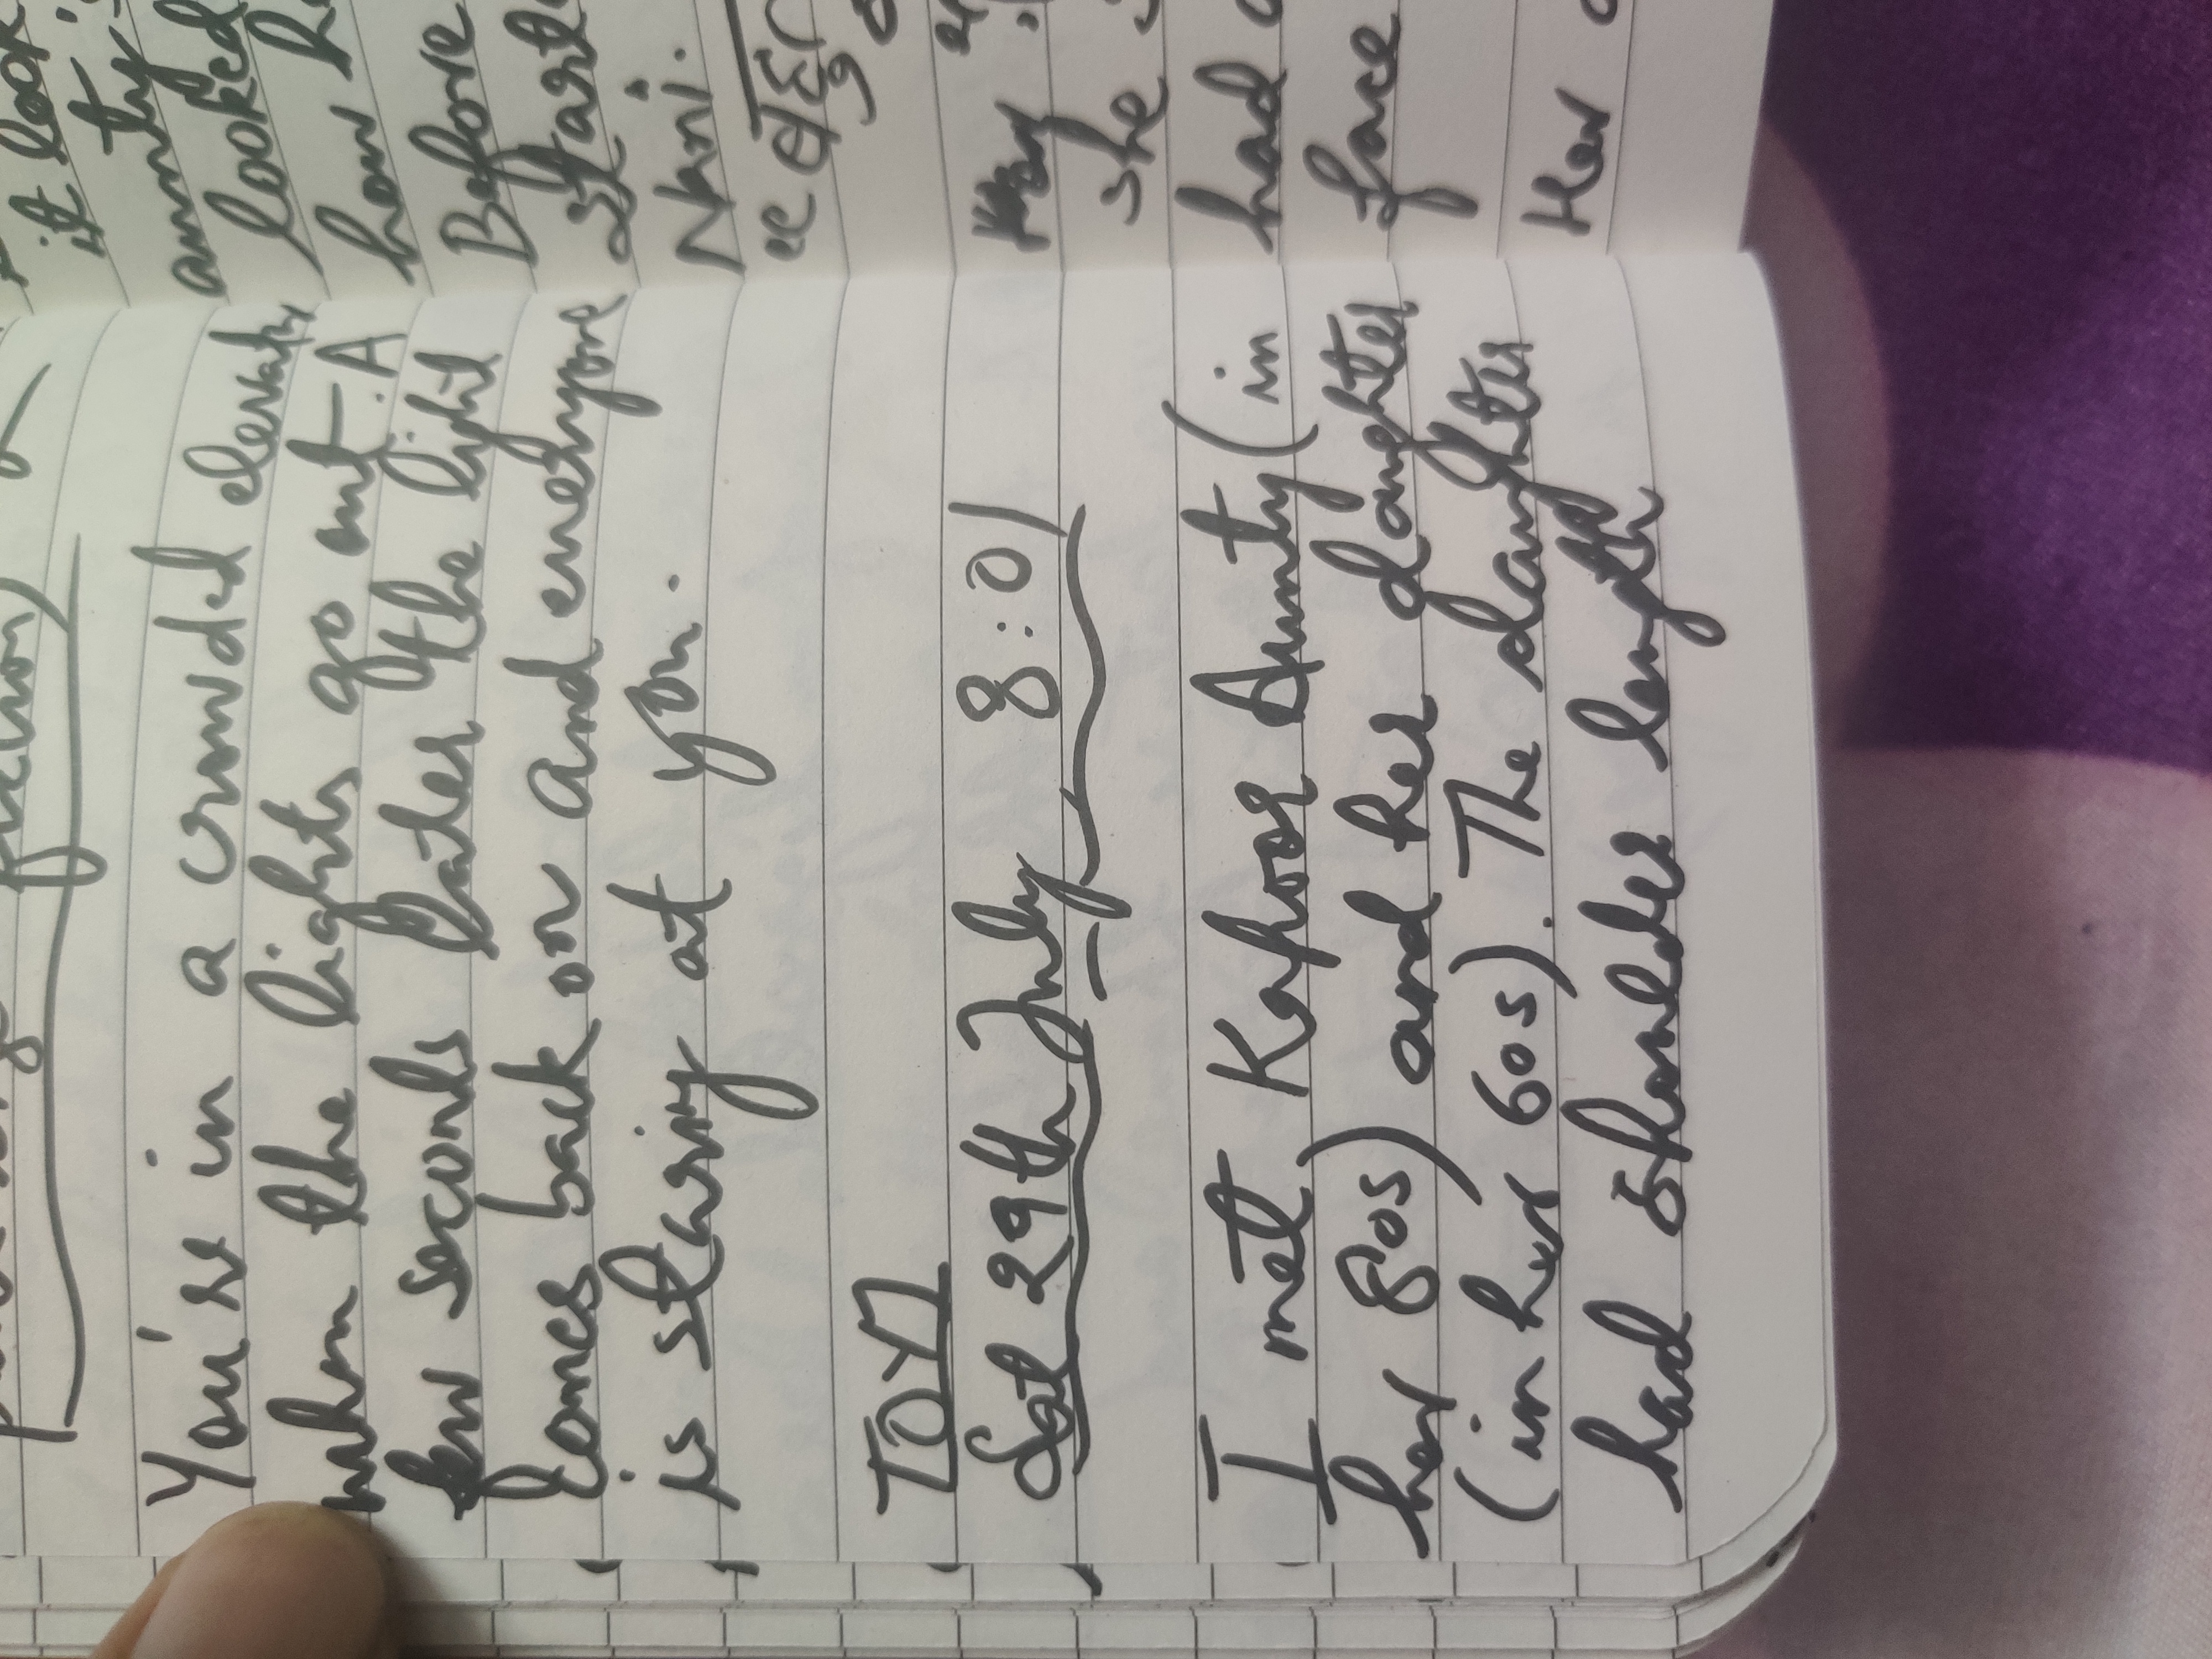 fiction)
You're in a crowded elevator
when the lights go out. A
few seconds later the light
comes back on and everyone
is staring at you.
Sat 29th July, 8:01
I met Kapoor Aunty (in
her 80s) and her daughter
(in her 60s). The daughter
had shoulder length
it look
aunty's
looked
how
Before
Nani.
she
had
face
Her